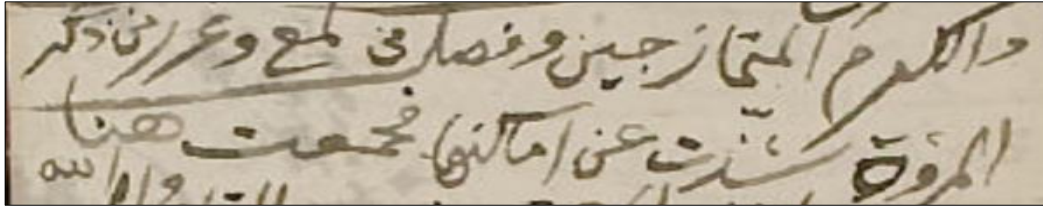 والكلام المتمازجين وفصل في لمع وغرر في ذكر
المروة شذت عن اماكنها فجمعت هنا
الله